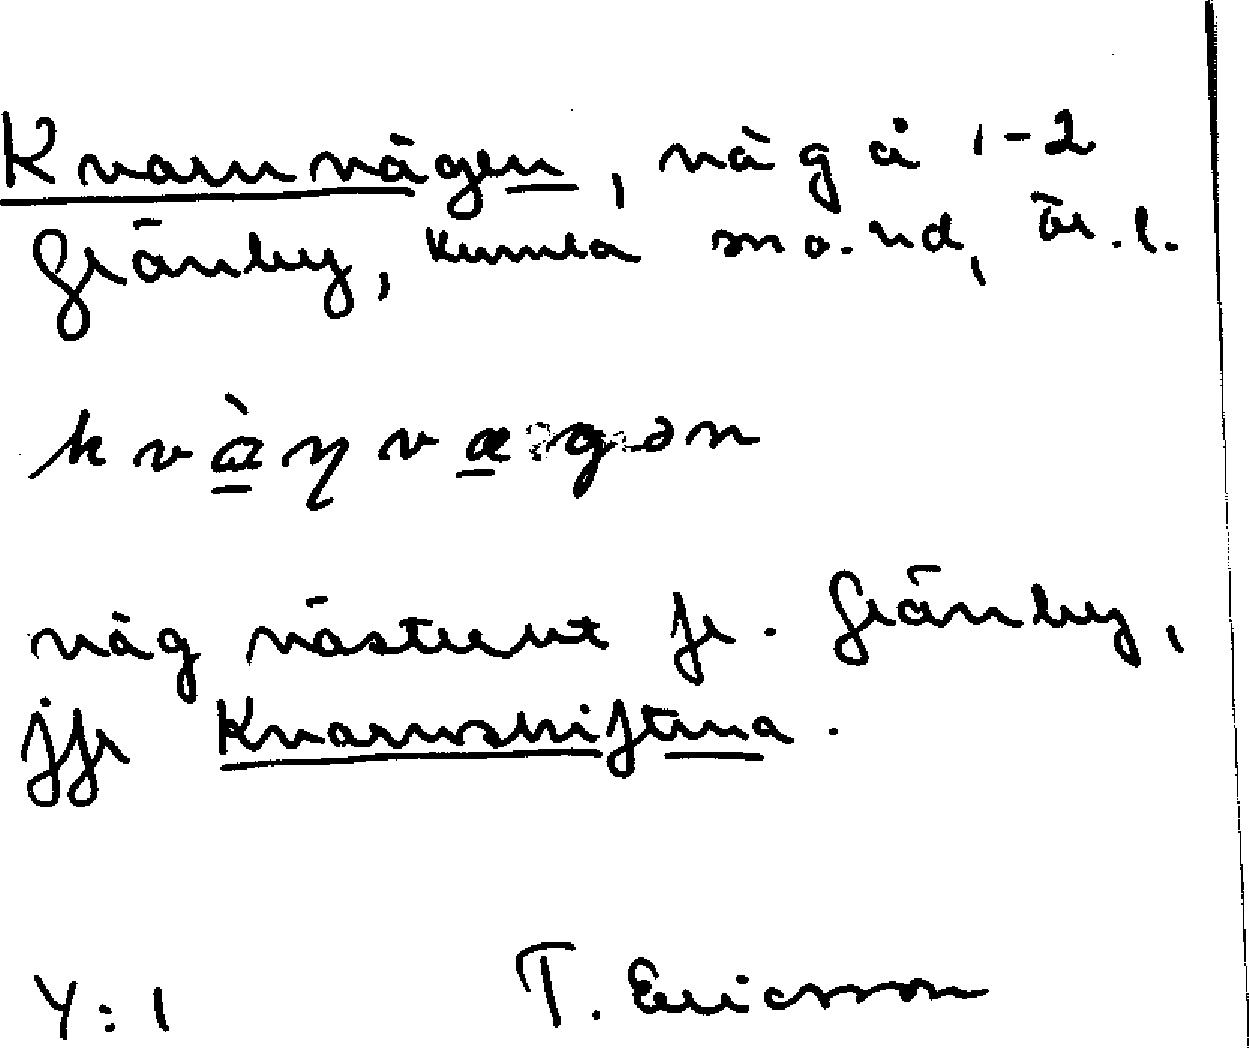 Kvarnvägen, väg å 1-2
Gränby, Kumla sn o. hd, Ör.l.
kvàɳvægən
väg västerut fr. Gränby,
jfr Kvarnskiftena.
Y:1 T. Ericsson